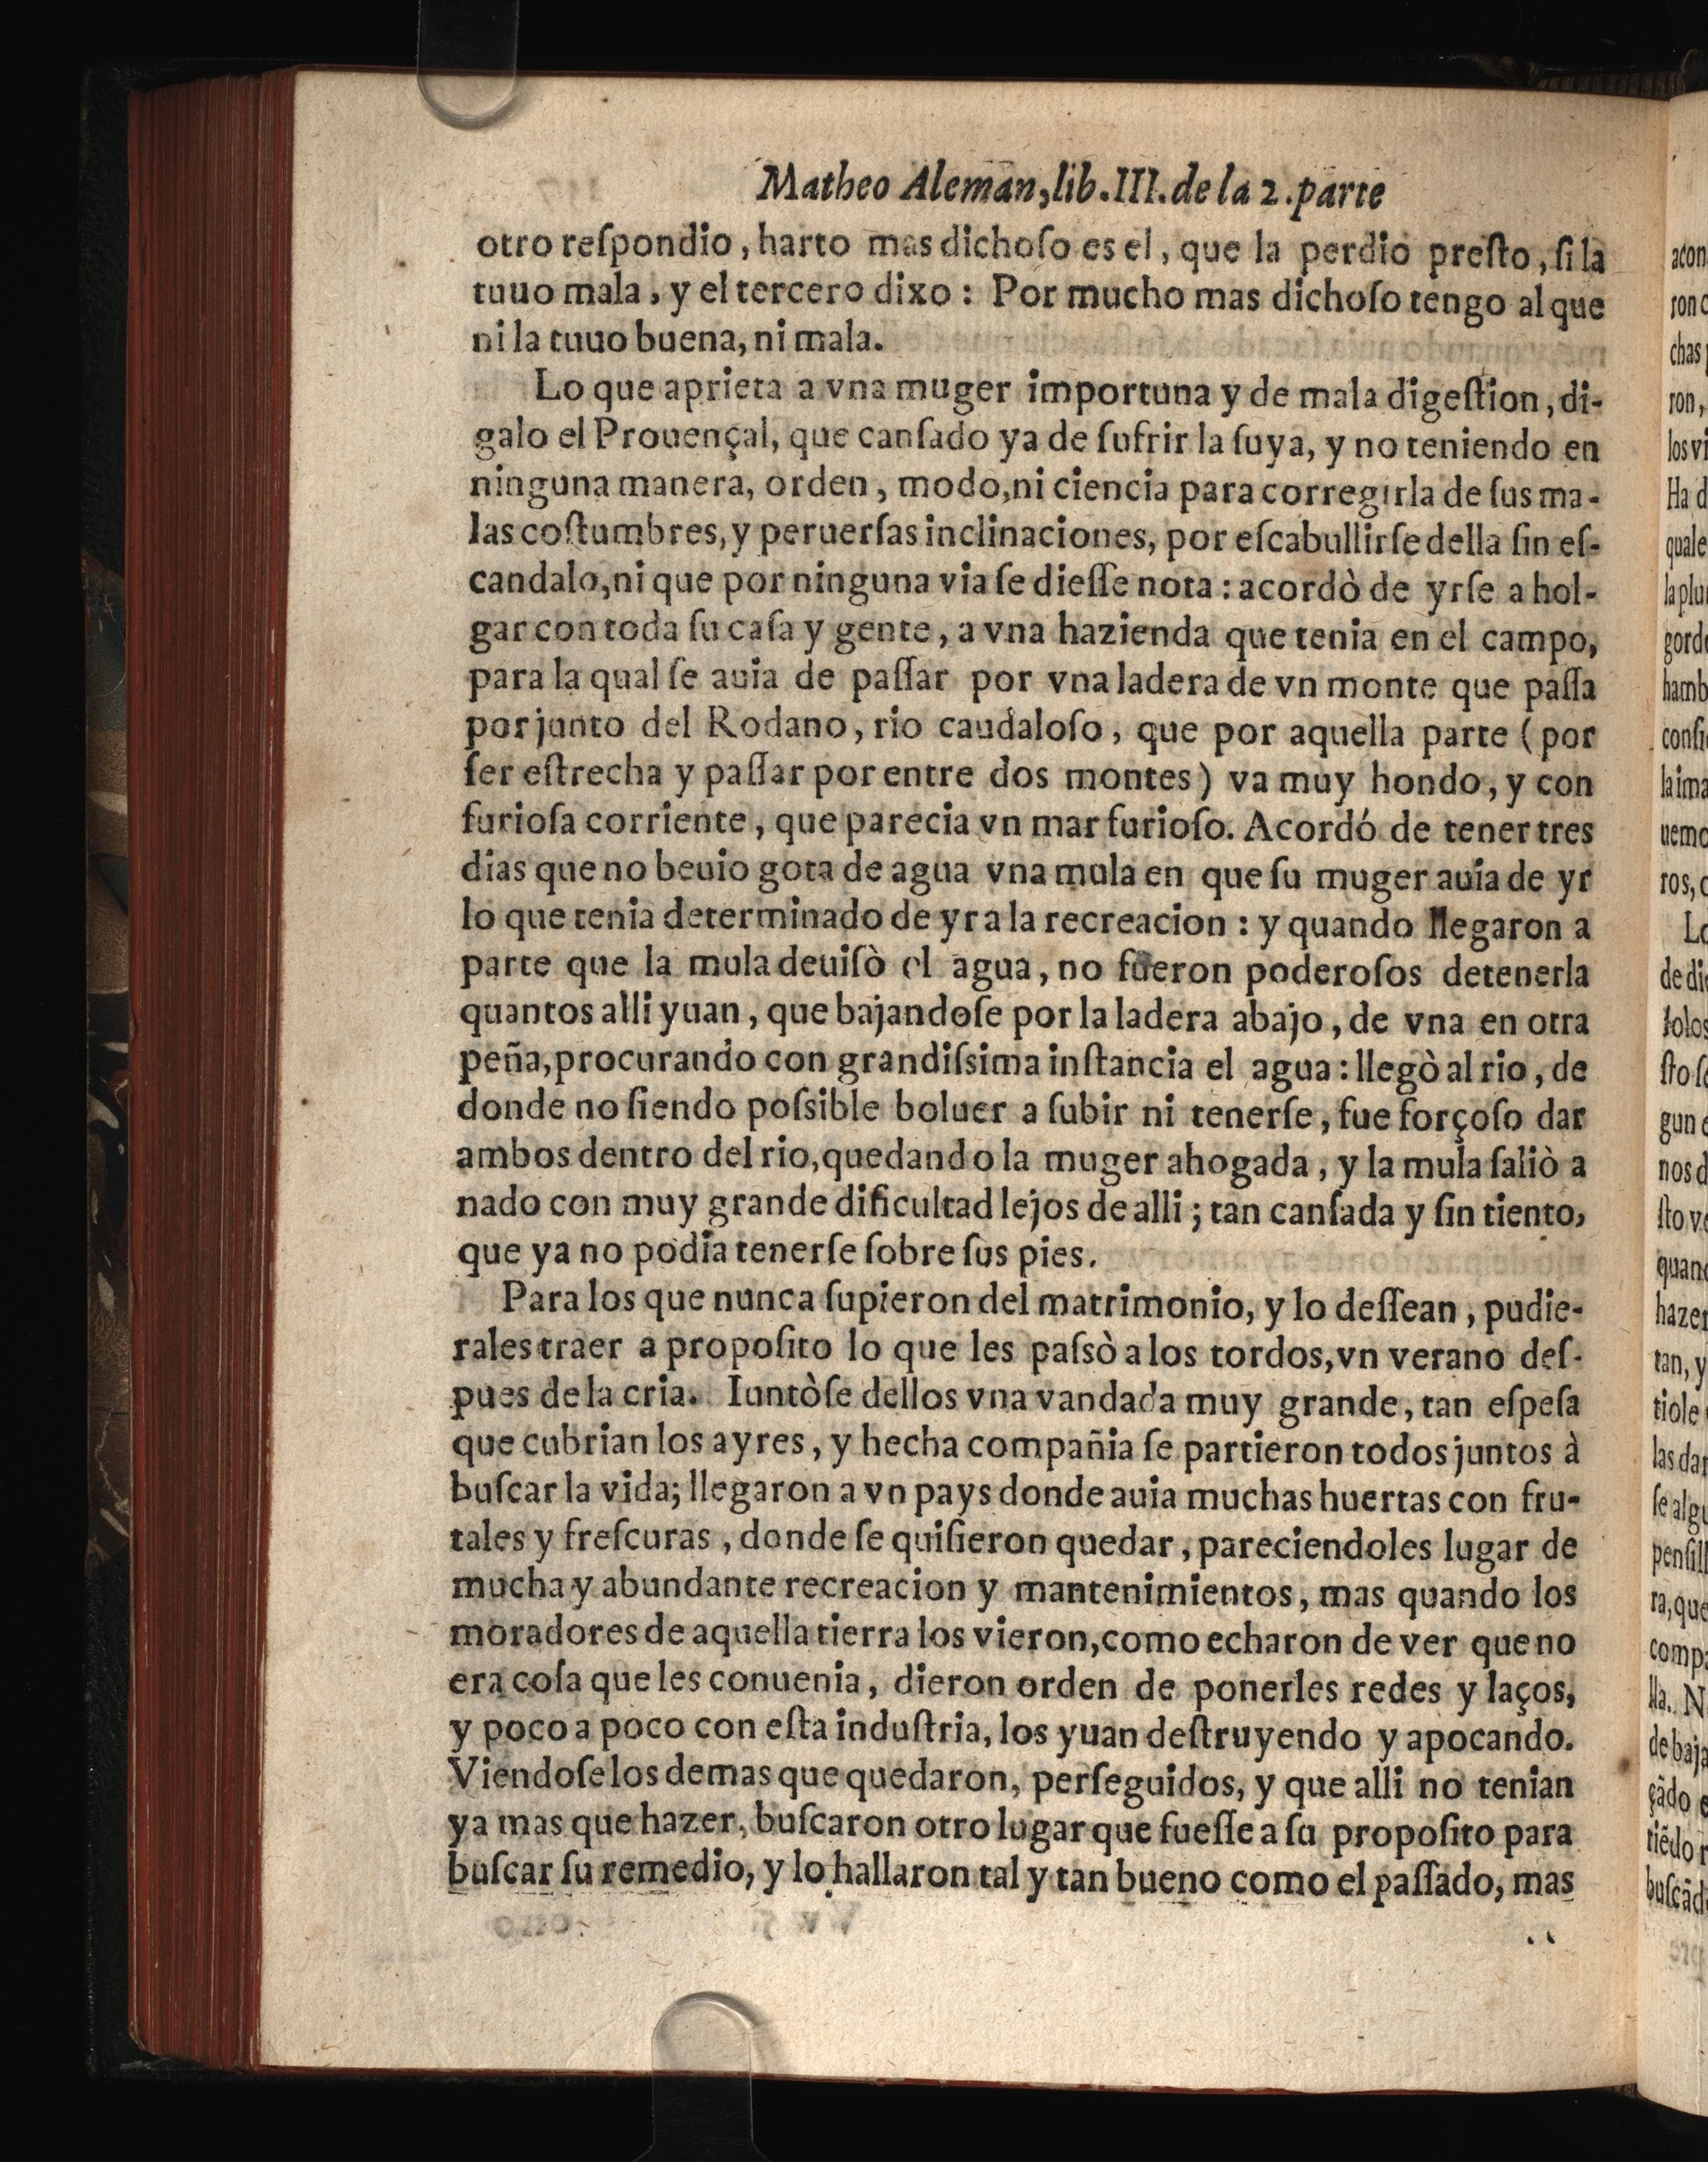 Matheo Aleman, lib. III. de la 2. parte
otro reſpondio, harto mas dichoſo es el, que la perdio preſto, ſi la
tuuo mala, y el tercero dixo: Por mucho mas dichoſo tengo al que
ni la tuuo buena, ni mala.
Lo que aprieta a vna muger importuna y de mala digeſtion, di-
galo el Prouençal, que canſado ya de ſufrir la ſuya, y no teniendo en
ninguna manera, orden, modo, ni ciencia para corregirla de ſus ma-
las coſtumbres, y peruerſas inclinaciones, por eſcabullirſe della ſin eſ-
candalo, ni que por ninguna via ſe dieſſe nota: acordò de yrſe a hol-
gar con toda ſu caſa y gente, a vna hazienda que tenia en el campo,
para la qual ſe auia de paſſar por vna ladera de vn monte que paſſa
por junto del Rodano, rio caudaloſo, que por aquella parte (por
ſer eſtrecha y paſſar por entre dos montes) va muy hondo, y con
furioſa corriente, que parecia vn mar furioſo. Acordó de tener tres
dias que no beuio gota de agua vna mula en que ſu muger auia de yr
lo que tenia determinado de yr a la recreacion: y quando llegaron a
parte que la mula deuiſò el agua, no fueron poderoſos detenerla
quantos alli yuan, que bajandoſe por la ladera abajo, de vna en otra
peña, procurando con grandiſsima inſtancia el agua: llegò al rio, de
donde no ſiendo poſsible boluer a ſubir ni tenerſe, fue forçoſo dar
ambos dentro del rio, quedando la muger ahogada, y la mula ſaliò a
nado con muy grande dificultad lejos de alli; tan canſada y ſin tiento,
que ya no podia tenerſe ſobre ſus pies.
Para los que nunca ſupieron del matrimonio, y lo deſſean, pudie-
rales traer a propoſito lo que les paſsò a los tordos, vn verano deſ-
pues de la cria. Iuntòſe dellos vna vandada muy grande, tan eſpeſa
que cubrian los ayres, y hecha compañia ſe partieron todos juntos à
buſcar la vida; llegaron a vn pays donde auia muchas huertas con fru-
tales y freſcuras, donde ſe quiſieron quedar, pareciendoles lugar de
mucha y abundante recreacion y mantenimientos, mas quando los
moradores de aquella tierra los vieron, como echaron de ver que no
era coſa que les conuenia, dieron orden de ponerles redes y laços,
y poco a poco con eſta induſtria, los yuan deſtruyendo y apocando.
Viendoſe los demas que quedaron, perſeguidos, y que alli no tenian
ya mas que hazer, buſcaron otro lugar que fueſſe a ſu propoſito para
buſcar ſu remedio, y lo hallaron tal y tan bueno como el paſſado, mas